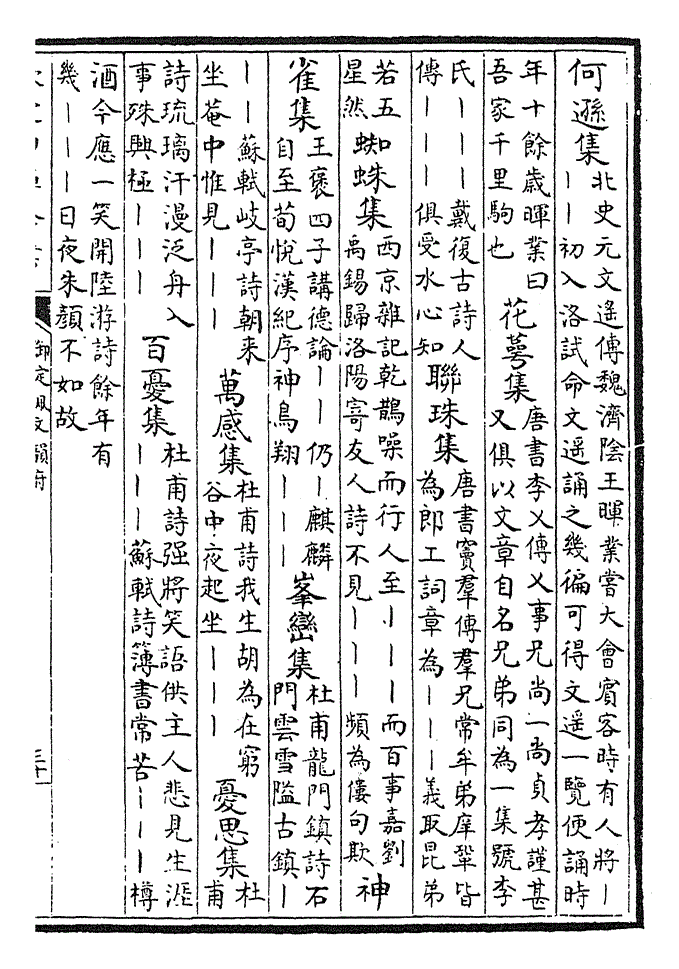 何遜集
北史元文遥傳魏濟陰王暉業嘗大會賓客時有人將丨
丨丨初入洛試命文遥誦之幾徧可得文遥一覽便誦時
年十餘歲暉業曰
吾家千里駒也
花萼集
唐書李乂傳乂事兄尚一尚貞孝謹甚
又俱以文章自名兄弟同為一集號李
氏丨丨丨戴復古詩人
傳丨丨丨俱受水心知
聯珠集
唐書竇羣傳羣兄常牟弟庠鞏皆
為郎工詞章為丨丨丨義取昆弟
若五
星然
蜘蛛集
西京雜記乾鵲噪而行人至丨丨丨而百事嘉劉
禹錫歸洛陽寄友人詩不見丨丨丨頻為僂句欺
神
雀集
王褒四子講德論丨丨仍丨麒麟
自至荀悅漢紀序神鳥翔丨丨丨
峯巒集
杜甫龍門鎮詩石
門雲雪隘古鎮丨
丨丨蘇軾岐亭詩朝来
坐菴中惟見丨丨丨
萬感集
杜甫詩我生胡為在窮
谷中夜起坐丨丨丨
憂思集
杜
甫
詩琉璃汗漫泛舟入
事殊興極丨丨丨
百憂集
杜甫詩强將笑語供主人悲見生涯
丨丨丨蘇軾詩簿書常苦丨丨丨樽
酒今應一笑開陸游詩餘年有
幾丨丨丨日夜朱顔不如故
御定佩文韻府